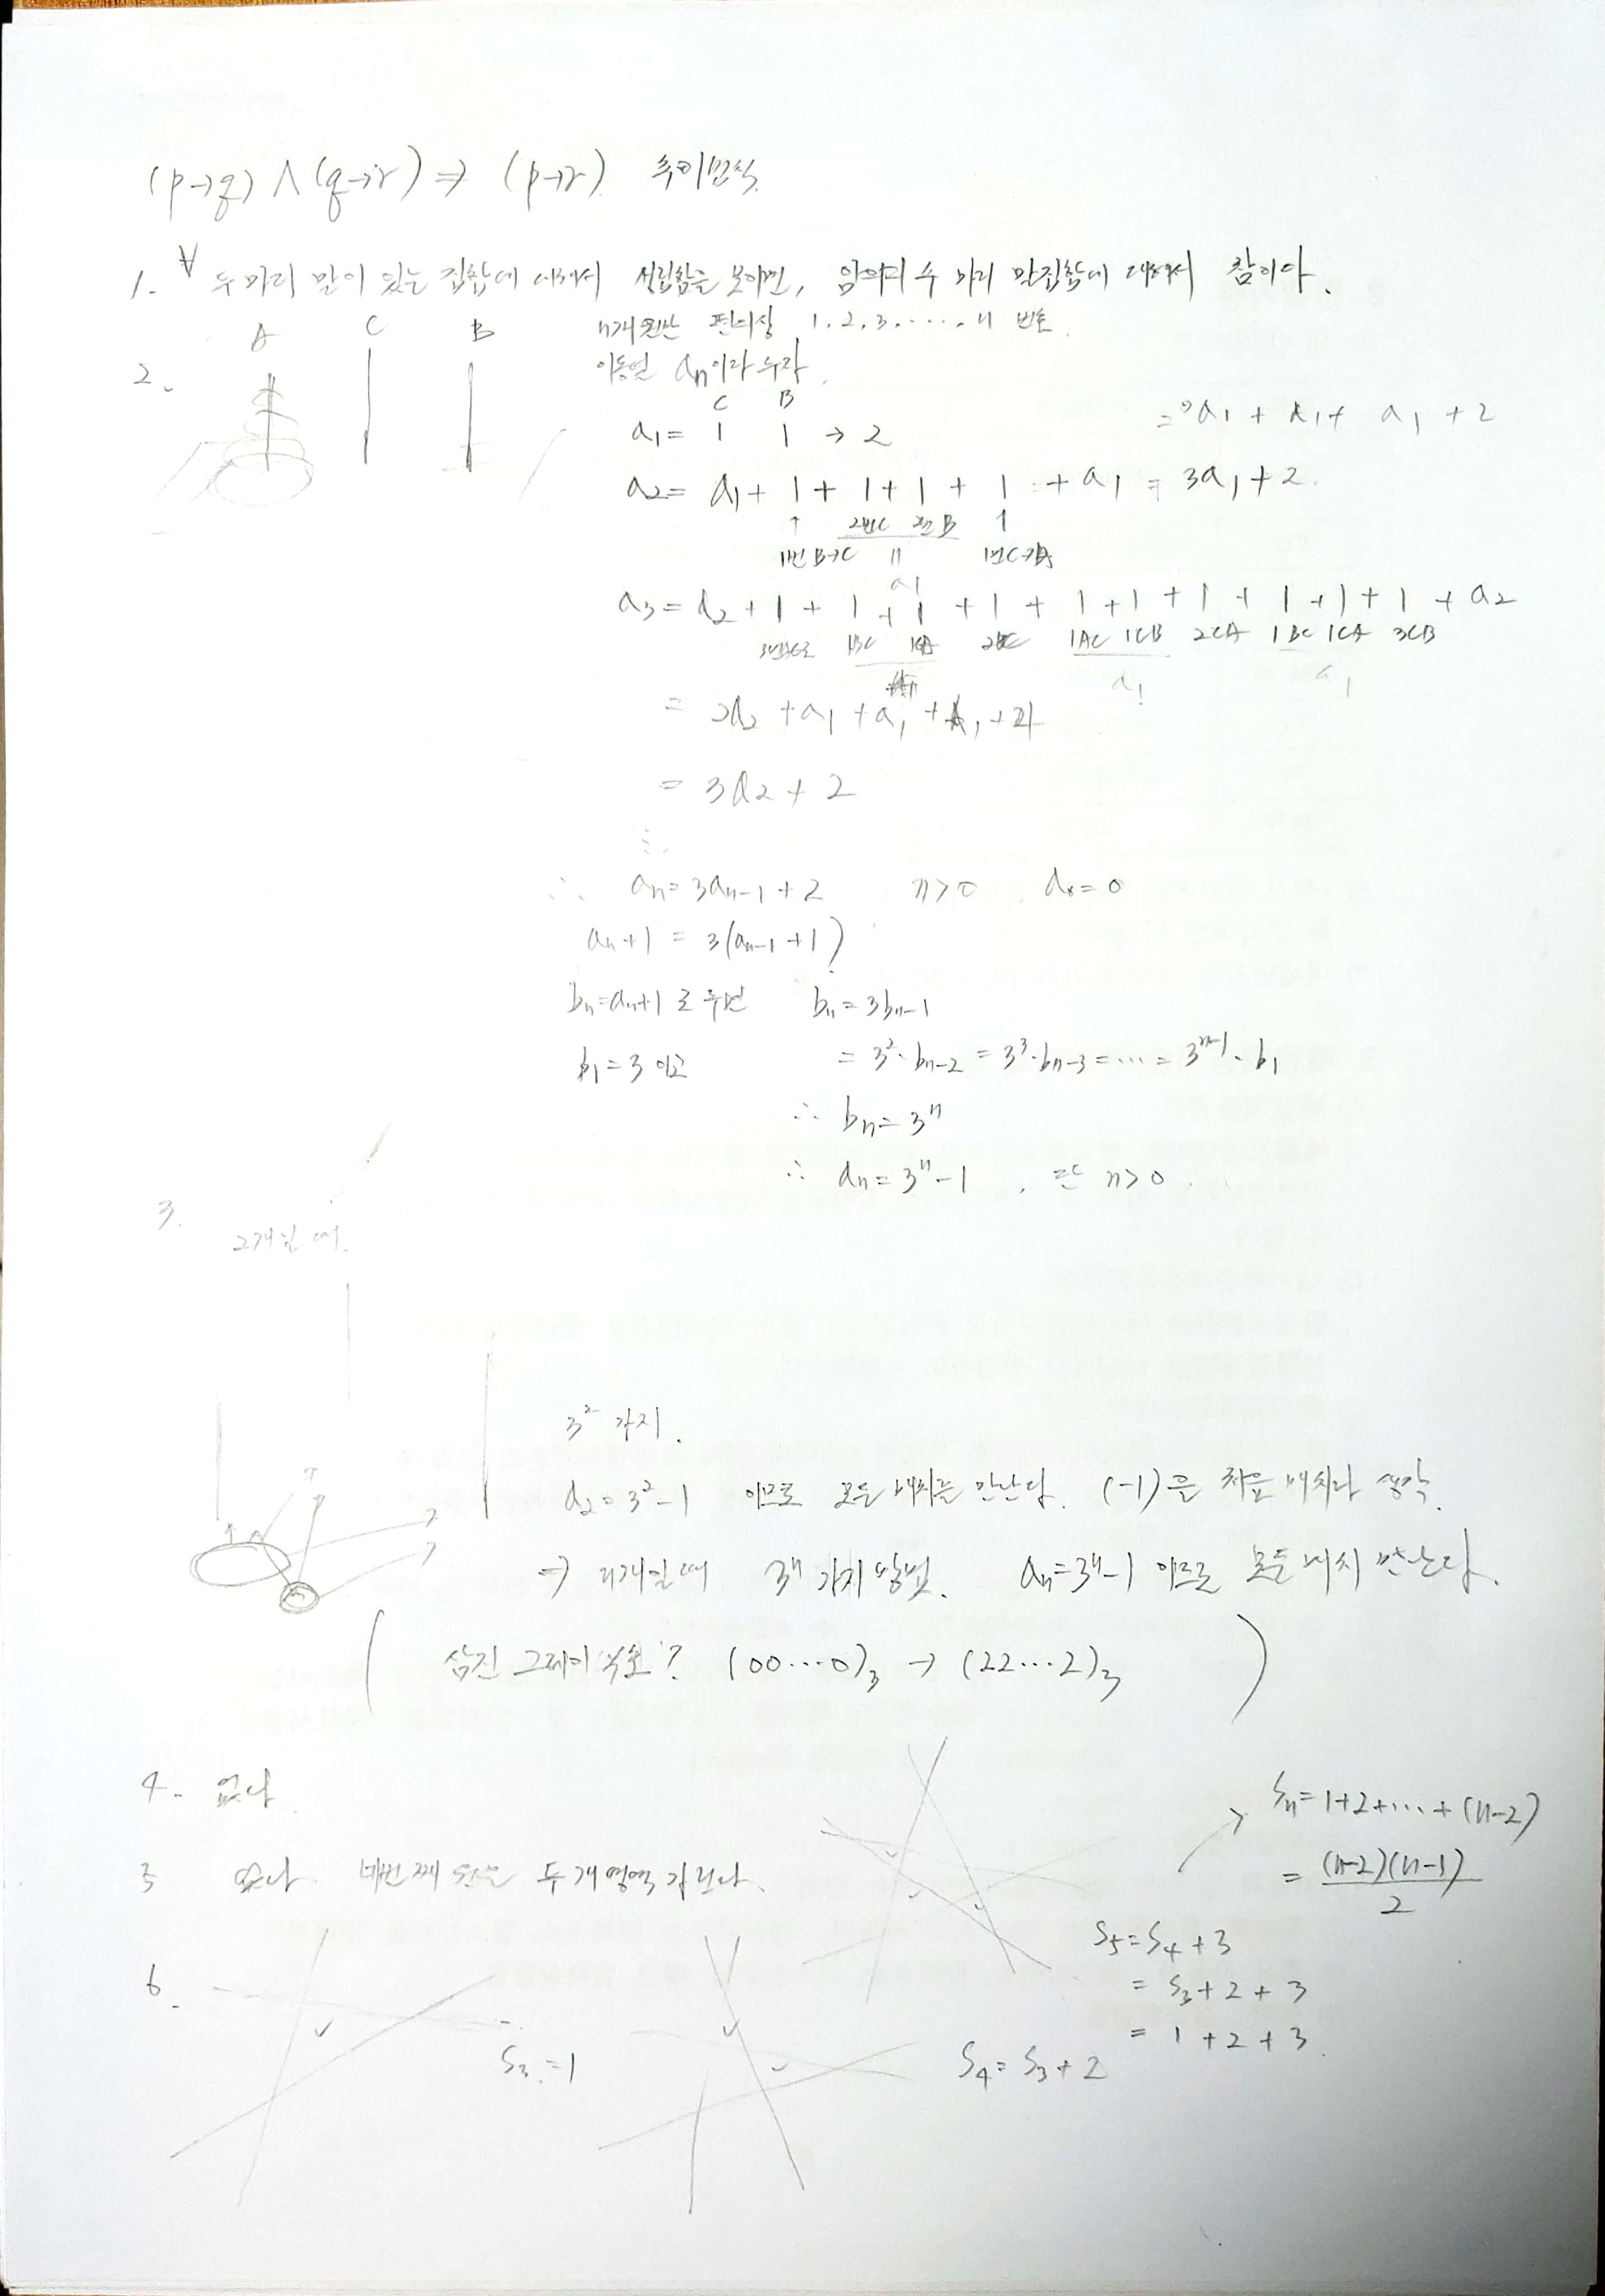 (p→q) ∧ (q→r) ⇒ (p→r) 추이법칙.
1. ∀ 두 마리 말이 있는 집합에 대해서 성립함을 보이면, 임의의 수 마리 말집합에 대해서 참이다.
A C B
n개 원반 편의상 1, 2, 3, ..., n 번호.
2. 이동을 aₙ이라 두자.
C B
a₁ = 1 1 → 2
= a₁ + a₁ + a₁ + 2
a₂ = a₁ + 1 + 1 + 1 + 1 + a₁ = 3a₁ + 2.
↑ 2번C 2번B ↑
1번 B→C 11 1번C→A
a₁
a₃ = a₂ + 1 + 1 + 1 + 1 + 1 + 1 + 1 + 1 + 1 + 1 + a₂
1BC 1CA 1AC 1CB 2CA 1BC 1CA 3CB
a₁ a₁
= 2a₂ + a₁ + a₁ + a₁ + 4
= 3a₂ + 2
∴ aₙ = 3aₙ₋₁ + 2 n>0, a₀ = 0
aₙ + 1 = 3(aₙ₋₁ + 1)
bₙ = aₙ + 1 로 두면 bₙ = 3bₙ₋₁
b₁ = 3 이고 = 3²·bₙ₋₂ = 3³·bₙ₋₃ = ... = 3ⁿ⁻¹·b₁
∴ bₙ = 3ⁿ
∴ aₙ = 3ⁿ - 1, 단 n>0.
3. 2개일 때.
3² 가지.
a₂ = 3² - 1 이므로 모든 배치를 만난다. (-1)은 처음 배치라 생각.
→ n개일 때 3ⁿ 가지 방법. aₙ = 3ⁿ - 1 이므로 모든 배치 만난다.
( 삼진 그레이 부호? (00...0)₃ → (22...2)₃ )
4. 없다.
Sₙ = 1+2+...+(n-2)
= (n-2)(n-1)/2
3 없다. 네번째 원은 두 개 영역 가른다.
S₅ = S₄ + 3
= S₃ + 2 + 3
= 1 + 2 + 3.
6.
S₃ = 1
S₄ = S₃ + 2